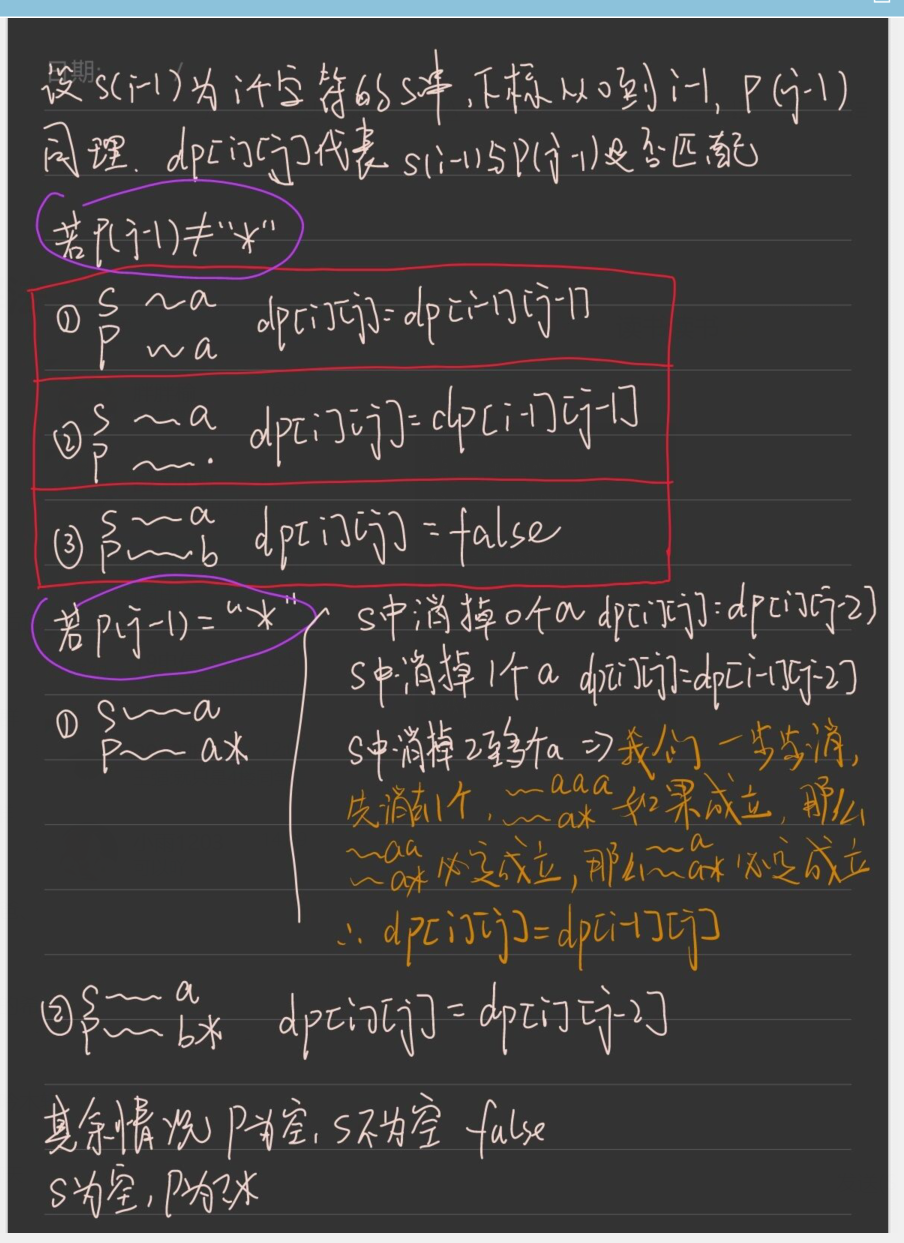 日期: /
设s(i-1)为i个字符的s串,下标从0到i-1, P(j-1)
同理. dp[i][j]代表s(i-1)与P(j-1)是否匹配
若P(j-1)≠"*"
① S ~a dp[i][j]=dp[i-1][j-1]
P ~a
② S ~a dp[i][j]=dp[i-1][j-1]
P ~.
③ S ~a dp[i][j]=false
P ~b
若P(j-1)="*"
① S~a
P~a*
S中消掉0个a dp[i][j]=dp[i][j-2]
S中消掉1个a dp[i][j]=dp[i-1][j-2]
S中消掉2至多个a => 我们一步步消,
先消前1个, ~aaa ~a* 如果成立, 那么
~aa ~a* 必定成立, 那么 ~a ~a* 必定成立
∴ dp[i][j]=dp[i-1][j]
② S~a dp[i][j]=dp[i][j-2]
P~b*
其余情况 P为空, S不为空 false
S为空, P为?*